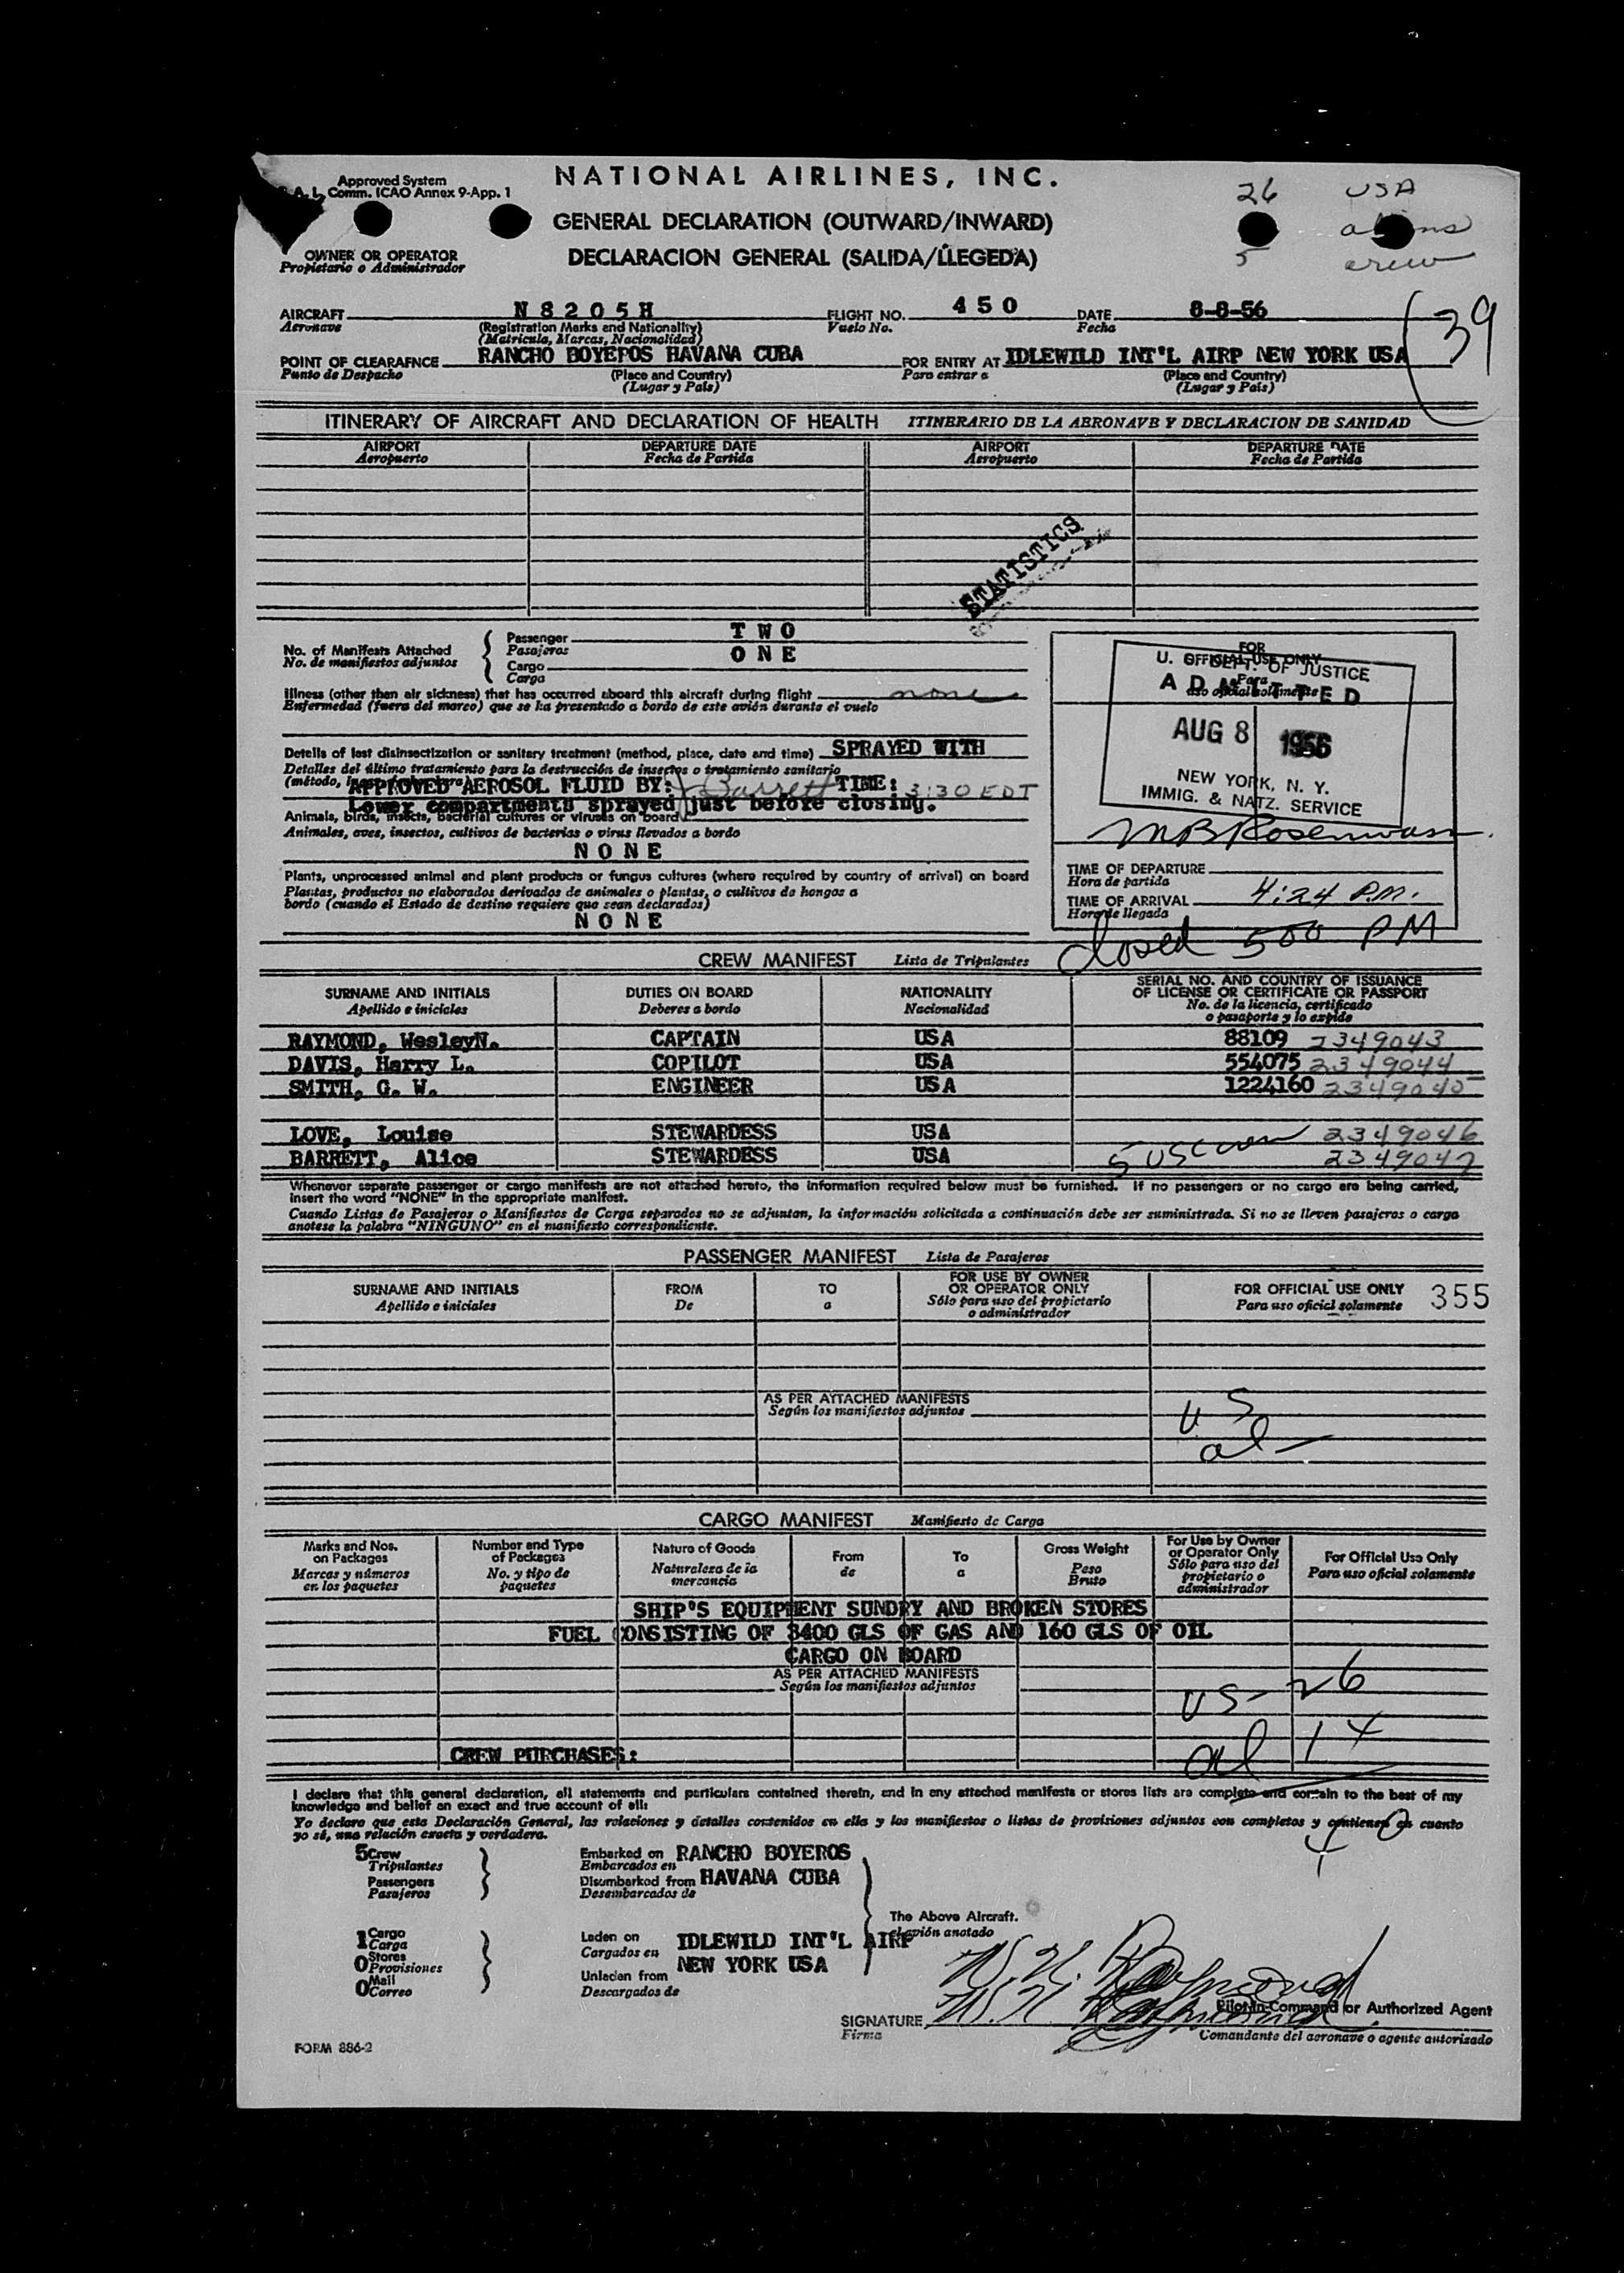 Approved System
Comm. ICAO Annex 9-App. 1
NATIONAL AIRLINES, INC.
GENERAL DECLARATION (OUTWARD/INWARD)
DECLARACION GENERAL (SALIDA/LLEGEDA)
26 USA
5 crew
OWNER OR OPERATOR
Propietario o Administrador
39
AIRCRAFT N8205H FLIGHT NO. 450 DATE 8-8-56
Aeronave (Registration Marks and Nationality) Vuelo No. Fecha
(Matricula, Marcas, Nacionalidad)
POINT OF CLEARAFNCE RANCHO BOYEROS HAVANA CUBA FOR ENTRY AT IDLEWILD INT'L AIRP NEW YORK USA
Punto de Despacho (Place and Country) Para entrar a (Place and Country)
(Lugar y País) (Lugar y País)
ITINERARY OF AIRCRAFT AND DECLARATION OF HEALTH ITINERARIO DE LA AERONAVE Y DECLARACION DE SANIDAD
AIRPORT DEPARTURE DATE AIRPORT DEPARTURE DATE
Aeropuerto Fecha de Partida Aeropuerto Fecha de Partida
STATISTICS
No. of Manifests Attached Passenger TWO
No. de manifiestos adjuntos Pasajeros
Cargo ONE
Carga
Illness (other than air sickness) that has occurred aboard this aircraft during flight none
Enfermedad (fuera del mareo) que se ha presentado a bordo de este avión durante el vuelo
Details of last disinsectization or sanitary treatment (method, place, date and time) SPRAYED WITH
Detalles del último tratamiento para la destrucción de insectos o tratamiento sanitario
APPROVED AEROSOL FLUID BY: Barrett TIME: 3:30 EDT
Lower compartments sprayed just before closing.
Animals, birds, insects, bacterial cultures or viruses on board
Animales, aves, insectos, cultivos de bacterias o virus llevados a bordo
NONE
Plants, unprocessed animal and plant products or fungus cultures (where required by country of arrival) on board
Plantas, productos no elaborados derivados de animales o plantas, o cultivos de hongos a
bordo (cuando el Estado de destino requiere que sean declarados)
NONE
FOR
OFFICIAL USE ONLY
Para
uso oficial solamente
U. S. DEPT. OF JUSTICE
ADMITTED
AUG 8 1956
NEW YORK, N. Y.
IMMIG. & NATZ. SERVICE
TIME OF DEPARTURE
Hora de partida
TIME OF ARRIVAL 4:24 P.M.
Hora de llegada
Closed 500 PM
CREW MANIFEST Lista de Tripulantes
SURNAME AND INITIALS DUTIES ON BOARD NATIONALITY SERIAL NO. AND COUNTRY OF ISSUANCE
OF LICENSE OR CERTIFICATE OR PASSPORT
Apellido e iniciales Deberes a bordo Nacionalidad No. de la licencia, certificado
o pasaporte y lo expide
RAYMOND, WesleyN. CAPTAIN USA 88109 2349043
DAVIS, Harry L. COPILOT USA 554075 2349044
SMITH, G. W. ENGINEER USA 1224160 2349045
LOVE, Louise STEWARDESS USA 2349046
BARRETT, Alice STEWARDESS USA 5 USC crew 2349047
Whenever separate passenger or cargo manifests are not attached hereto, the information required below must be furnished. If no passengers or no cargo are being carried,
insert the word "NONE" in the appropriate manifest.
Cuando Listas de Pasajeros o Manifiestos de Carga separados no se adjuntan, la información solicitada a continuación debe ser suministrada. Si no se lleven pasajeros o carga
anotese la palabra "NINGUNO" en el manifiesto correspondiente.
PASSENGER MANIFEST Lista de Pasajeros
SURNAME AND INITIALS FROM TO FOR USE BY OWNER
OR OPERATOR ONLY FOR OFFICIAL USE ONLY 355
Apellido e iniciales De a Sólo para uso del propietario
o administrador Para uso oficial solamente
AS PER ATTACHED MANIFESTS
Según los manifiestos adjuntos
US
al
CARGO MANIFEST Manifiesto de Carga
Marks and Nos.
on Packages
Marcas y números
en los paquetes
Number and Type
of Packages
No. y tipo de
paquetes
Nature of Goods
Naturaleza de la
mercancia
From
de
To
a
Gross Weight
Peso
Bruto
For Use by Owner
or Operator Only
Sólo para uso del
propietario o
administrador
For Official Use Only
Para uso oficial solamente
SHIP'S EQUIPMENT SUNDRY AND BROKEN STORES
FUEL CONSISTING OF 3400 GLS OF GAS AND 160 GLS OF OIL
CARGO ON BOARD
AS PER ATTACHED MANIFESTS
Según los manifiestos adjuntos
US- 26
al
CREW PURCHASES:
I declare that this general declaration, all statements and particulars contained therein, and in any attached manifests or stores lists are complete and contain to the best of my
knowledge and belief an exact and true account of all:
Yo declaro que esta Declaración General, las relaciones y detalles contenidos en ella y los manifiestos o listas de provisiones adjuntos son completos y contienen en cuanto
yo sé, una relación exacta y verdadera.
5 Crew Embarked on RANCHO BOYEROS
Tripulantes Embarcados en
Passengers Disembarked from HAVANA CUBA
Pasajeros Desembarcados de
The Above Aircraft.
el avión anotado
1 Cargo Laden on IDLEWILD INT'L AIRP
Carga Cargados en
0 Stores NEW YORK USA
Provisiones
0 Mail Unladen from
Correo Descargados de
W. N. Raymond
W. N. Raymond
Pilot-in-Command or Authorized Agent
SIGNATURE
Firma Comandante del aeronave o agente autorizado
FORM 886-2